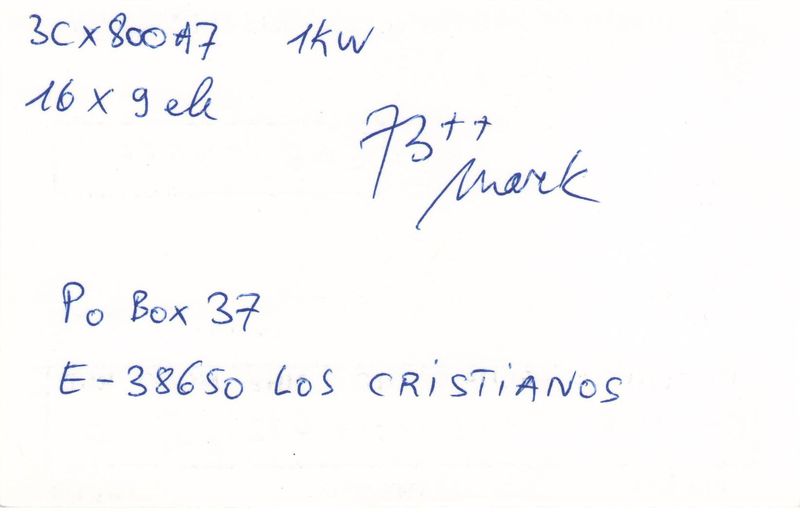 3CX800A7 1KW
16 x 9 ele
73++
Mark
Po Box 37
E-38650 LOS CRISTIANOS